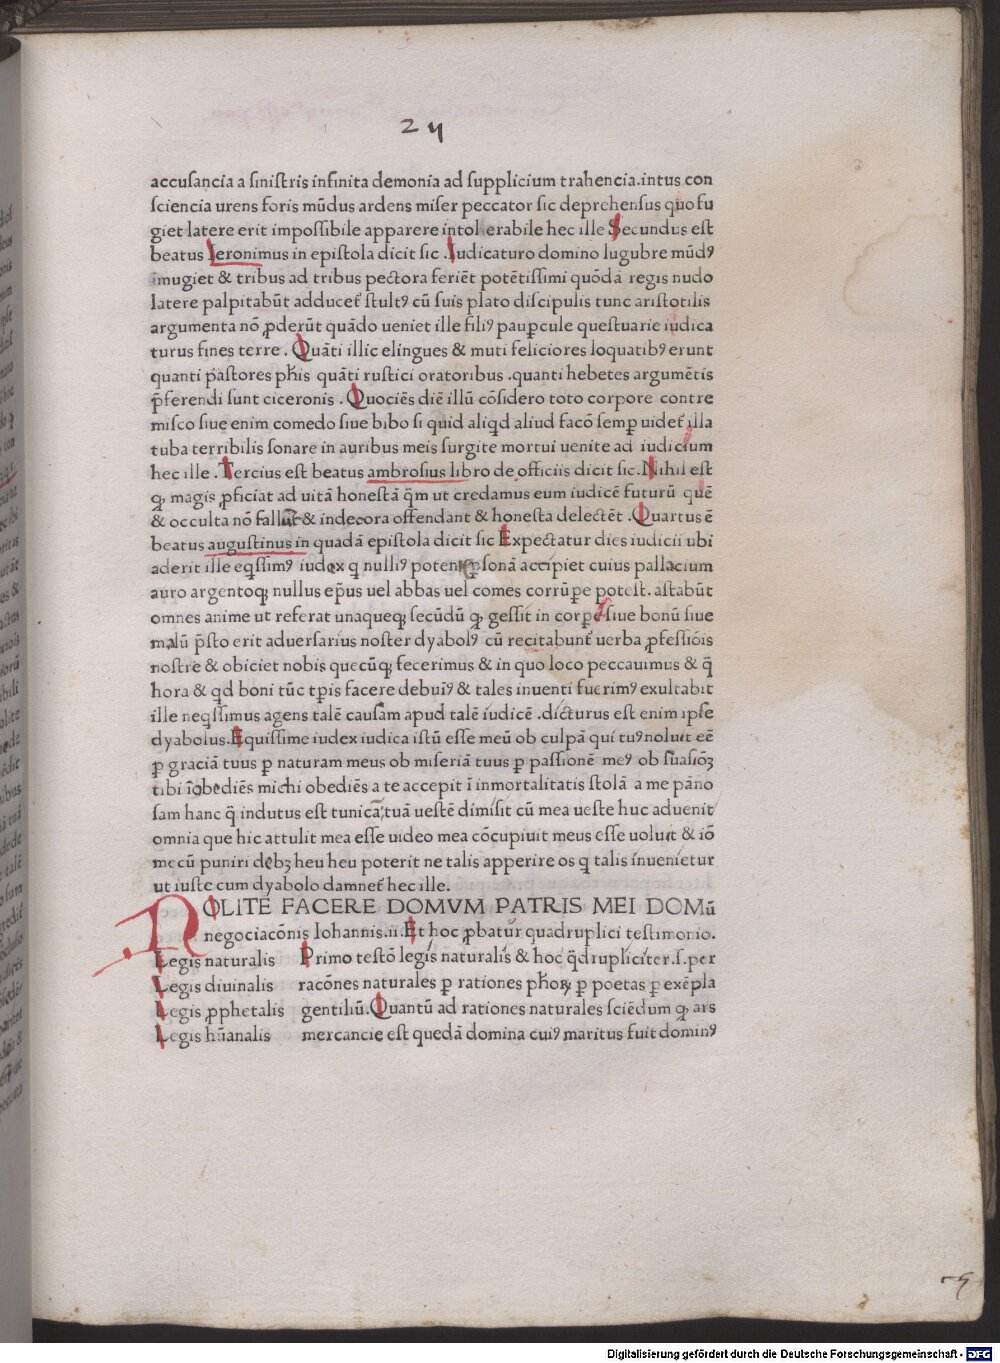 24
accusancia a sinistris infinita demonia ad supplicium trahencia.intus con
sciencia urens foris mūdus ardens miser peccator sic deprehensus quo fu
giet latere erit impossibile apparere intollerabile hec ille Secundus est
beatus Ieronimus in epistola dicit sic .Iudicaturo domino lugubre mūdꝰ
imugiet & tribus ad tribus pectora feriēt potētissimi quōdā regis nudo
latere palpitabūt adducet̄ stultꝰ cū suis plato discipulis tunc aristotilis
argumenta nō ꝓderūt quādo ueniet ille filiꝰ paup̱cule questuarie iudica
turus fines terre . Quāti illic elingues & muti feliciores loquatibꝰ erunt
quanti pastores pħis quāti rustici oratoribus .quanti hebetes argumētis
p̄ferendi sunt ciceronis . Quociēs diē illū cōsidero toto corpore contre
misco siue enim comedo siue bibo si quid aliqd aliud facō semp̱ uidet̄ illa
tuba terribilis sonare in auribus meis surgite mortui uenite ad iudicium
hec ille . Tercius est beatus ambrosius libro de officiis dicit sic. Nihil est
ꝙ magis ꝓficiat ad uitā honestā q̄m ut credamus eum iudicē futurū quē
& occulta nō fallūt & indecora offendant & honesta delectēt . Quartus ē
beatus augustinus in quadā epistola dicit sic Expectatur dies iudicii ubi
aderit ille eqssimꝰ iudex q nulliꝰ potentis ꝑsonā accipiet cuius pallacium
auro argentoqꝫ nullus ep̄us uel abbas uel comes corrūp̱e potest. astabūt
omnes anime ut referat unaqueqꝫ secūdū ꝙ gessit in corpe siue bonū siue
malū p̄sto erit aduersarius noster dyabolꝰ cū recitabunt̄ uerba ꝓfessiōis
nostre & obiciet nobis quecūqꝫ fecerimus & in quo loco peccauimus & q̄
hora & qd boni tūc tp̄is facere debuiꝰ & tales inuenti fuerimꝰ exultabit
ille neqssimus agens talē causam apud talē iudicē .dicturus est enim ipse
dyabolus. Equissime iudex iudica istū esse meū ob culpā qui tuꝰ noluit eē
ꝑ graciā tuus ꝑ naturam meus ob miseriā tuus ꝑ passionē meꝰ ob suasiōꝫ
tibi īobediēs michi obediēs a te accepit ī inmortalitatis stolā a me pāno
sam hanc q̄ indutus est tunicā, tuā uestē dimisit cū mea ueste huc aduenit
omnia que hic attulit mea esse uideo mea cōcupiuit meus esse uoluit & iō
mecū puniri debꝫ heu heu poterit ne talis apperire os q talis inuenietur
ut iuste cum dyabolo damnet̄ hec ille.
NOLITE FACERE DOMVM PATRIS MEI DOMū
negociacōnis Iohannis.ii. Et hoc ꝓbatur quadruplici testimonio.
Legis naturalis Primo testō legis naturalis & hoc q̄drupliciter.s.per
Legis diuinalis racōnes naturales ꝑ rationes pħoꝝ ꝑ poetas ꝑ exēpla
Legis ꝓphetalis gentiliū. Quantū ad rationes naturales sciēdum ꝙ ars
Legis hūanalis mercancie est quedā domina cuiꝰ maritus fuit dominꝰ
Digitalisierung gefördert durch die Deutsche Forschungsgemeinschaft - DFG